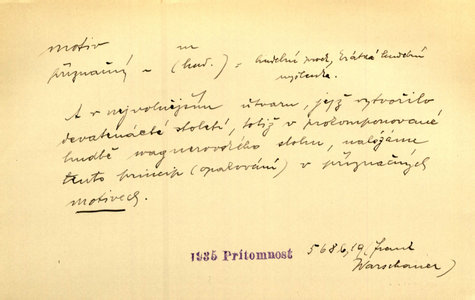 motiv m
příznačný ~ (hud.) = hudební prvek, krátká hudební
myšlenka.
A v nejvolnějším útvaru, jejž vytvořilo
devatenácté století, totiž v prokomponované
hudbě wagnerovského slohu, nalézáme
tento princip (opakování) v příznačných
motivech.
1935 Přítomnost 568 b, (Q. Frank
Warschauer)